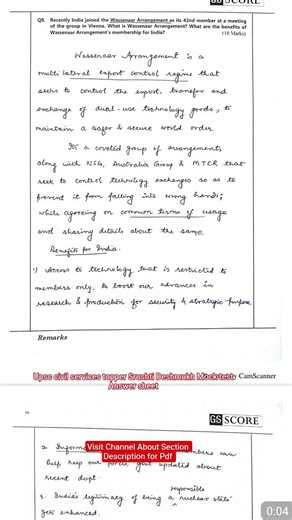 GS SCORE
Q9. Recently India joined the Wassenaar Arrangement as its 42nd member at a meeting
of the group in Vienna. What is Wassenaar Arrangement? What are the benefits of
Wassenaar Arrangement's membership for India? (10 Marks)
Wassenaar Arrangement is a
multilateral export control regime that
seeks to control the export, transfer and
exchange of dual-use technology goods, to
maintain a safer & secure world order.
a coveted group of arrangements
along with NSG, Australia Group & MTCR that
seek to control technology exchanges so as to
prevent it from falling into wrong hands;
while agreeing on common terms of usage
and sharing details about the same.
Benefits for India.
1) Access to technology that is restricted to
members only, to boost our advances in
research & production for security & strategic purpose
Remarks
Upsc civil services topper Srushti Deshmukh Mock test
Answer sheet
CamScanner
GS SCORE
Visit Channel About Section
Description for Pdf
2. can
help keep our force, govt updated about
recent
responsible
3. India's legitimacy of being a nuclear state
gets enhanced.
0:04